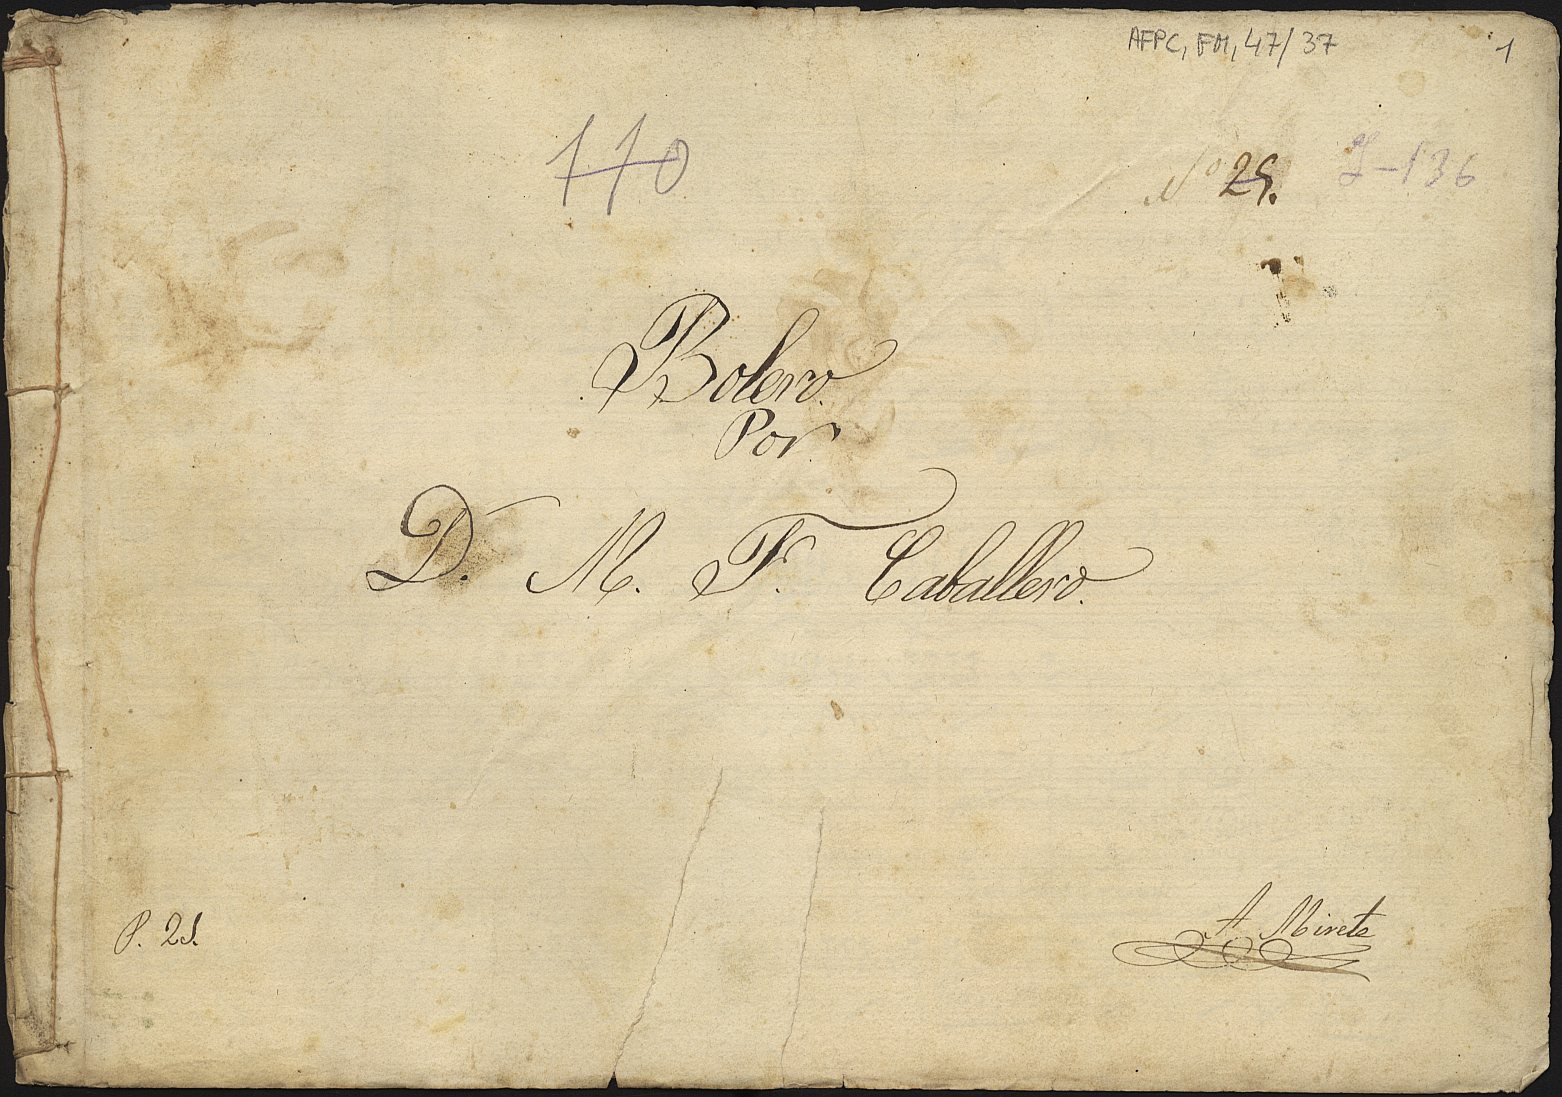 AFPC, FM, 47/37
1
110
Nº 25.
J-136
Bolero.
Por
D. M. F. Caballero.
P. 25.
A Mirete